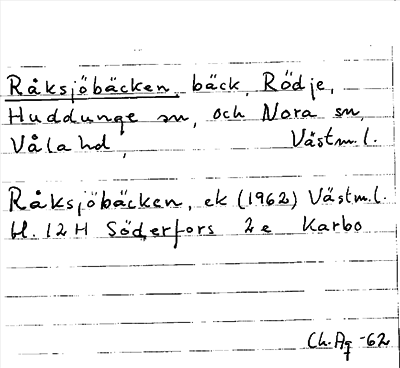 Råksjöbäcken, bäck, Rödje,
Huddunge sn, och Nora sn,
Våla hd, Västm.l.
Råksjöbäcken, ek (1962) Västm.l.
bl. 12 H Söderfors 2 e Karbo
Ch. Ag -62